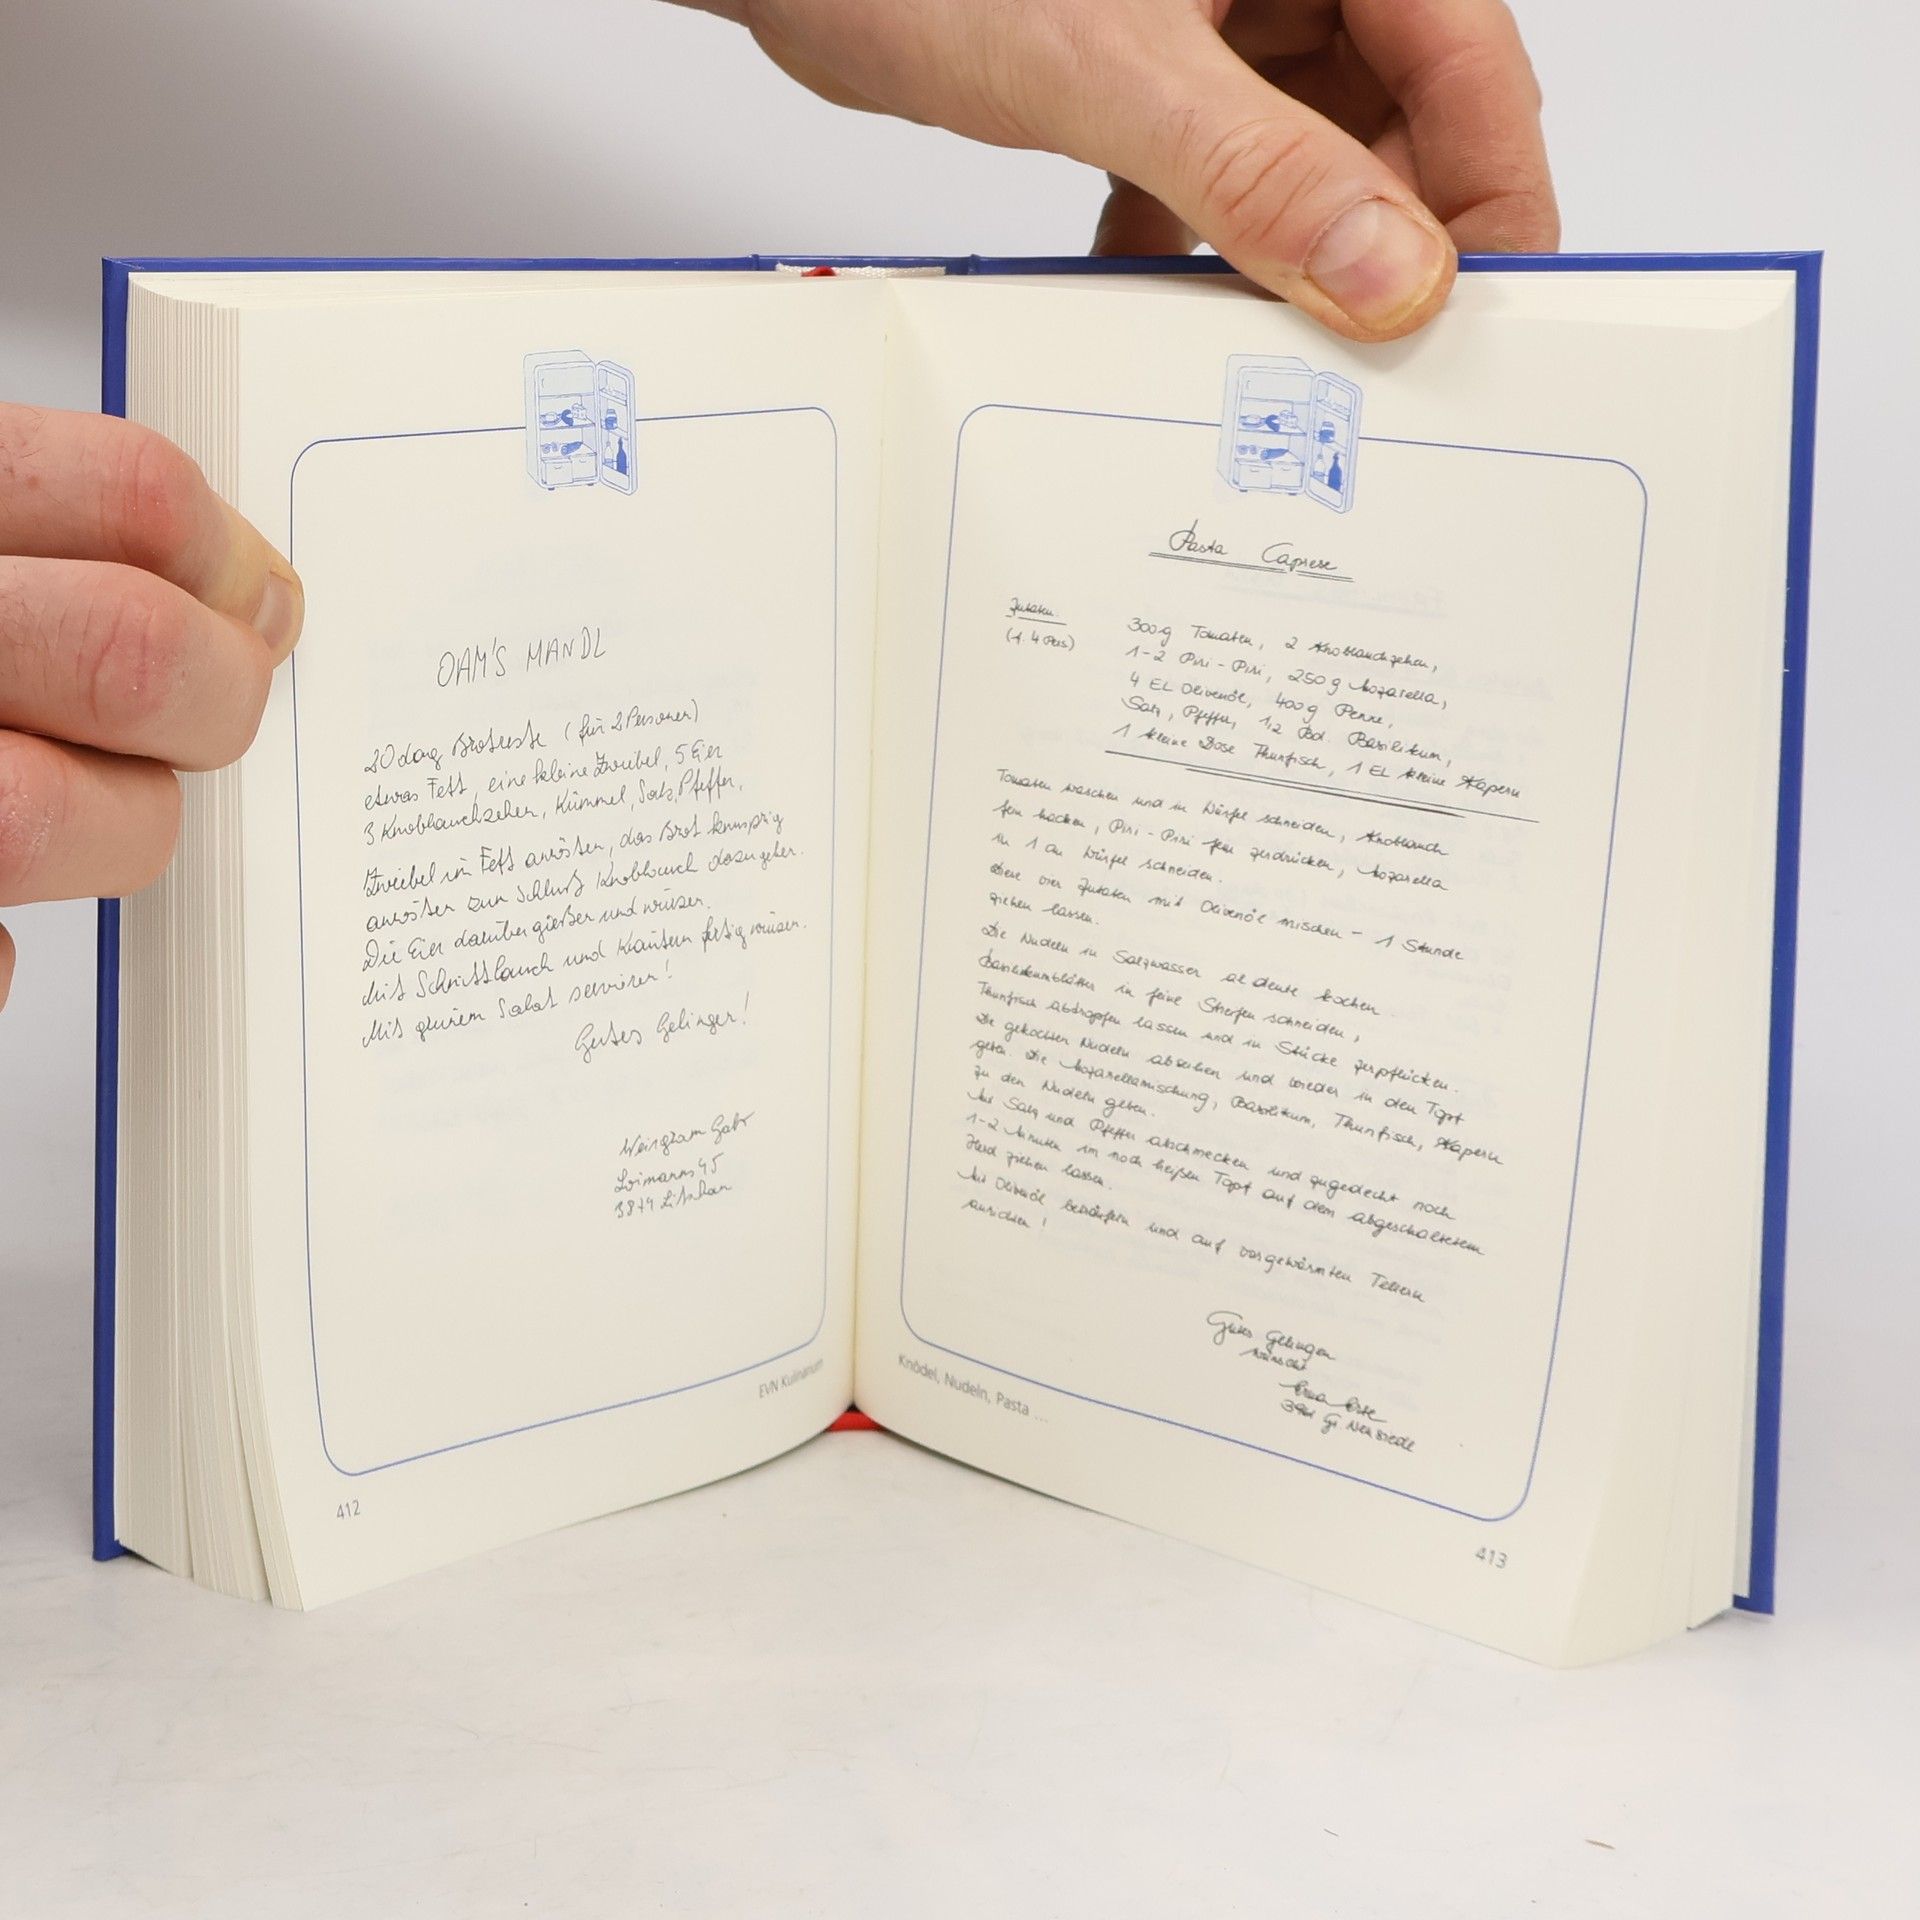 OAM'S MANDL
20 dag Brotreste (für 2 Personen)
etwas Fett, eine kleine Zwiebel, 5 Eier
3 Knoblauchzehen, Kümmel, Salz, Pfeffer,
Zwiebel im Fett anrösten, das Brot knusprig
anrösten zum Schluß Knoblauch dazugeben.
Die Eier darüber gießen und würzen.
Mit Schnittlauch und Kräutern fertig würzen.
Mit grünem Salat servieren!
Gutes Gelingen!
Weingram Gabr
Loimanns 45
3874 Litschau
EVN Kulinarium
412
Pasta Caprese
Zutaten
(f. 4 Pers)
300g Tomaten, 2 Knoblauchzehen,
1-2 Piri-Piri, 250g Mozarella,
4 EL Olivenöl, 400g Penne,
Salz, Pfeffer, 1/2 Bd. Basilikum,
1 kleine Dose Thunfisch, 1 EL kleine Kapern
Tomaten waschen und in Würfel schneiden, Knoblauch
fein hacken, Piri-Piri fein zerdrücken, Mozarella
in 1 cm Würfel schneiden.
Diese vier Zutaten mit Olivenöl mischen - 1 Stunde
ziehen lassen.
Die Nudeln in Salzwasser al dente kochen.
Basilikumblätter in feine Streifen schneiden,
Thunfisch abtropfen lassen und in Stücke zerpflücken.
Die gekochten Nudeln abseihen und wieder in den Topf
geben. Die Mozarellamischung, Basilikum, Thunfisch, Kapern
zu den Nudeln geben.
Mit Salz und Pfeffer abschmecken und zugedeckt noch
1-2 Minuten im noch heißen Topf auf dem abgeschaltetem
Herd ziehen lassen.
Mit Olivenöl beträufeln und auf vorgewärmten Tellern
anrichten!
Gutes Gelingen
wünscht
Gr. Neusiedl
Knödel, Nudeln, Pasta ...
413